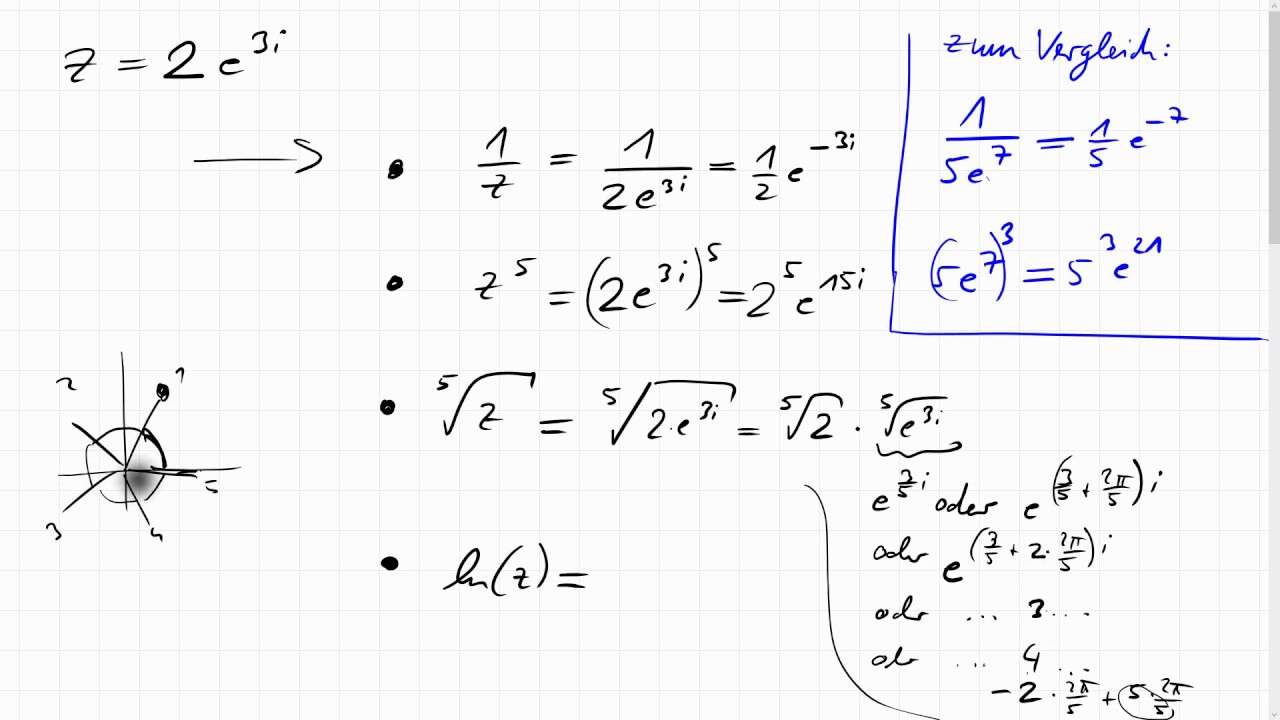 z = 2 e^{3i}
zum Vergleich:
\frac{1}{5e^7} = \frac{1}{5} e^{-7}
(5e^7)^3 = 5^3 e^{21}
• \frac{1}{z} = \frac{1}{2e^{3i}} = \frac{1}{2} e^{-3i}
• z^5 = (2e^{3i})^5 = 2^5 e^{15i}
• \sqrt[5]{z} = \sqrt[5]{2 \cdot e^{3i}} = \sqrt[5]{2} \cdot \sqrt[5]{e^{3i}}
e^{\frac{3}{5}i} oder e^{(\frac{3}{5} + \frac{2\pi}{5})i}
oder e^{(\frac{3}{5} + 2 \cdot \frac{2\pi}{5})i}
oder ... 3 ...
oder ... 4 ...
-2 \cdot \frac{2\pi}{5} + 5 \cdot \frac{2\pi}{5}
1
2
3
4
5
• ln(z) =